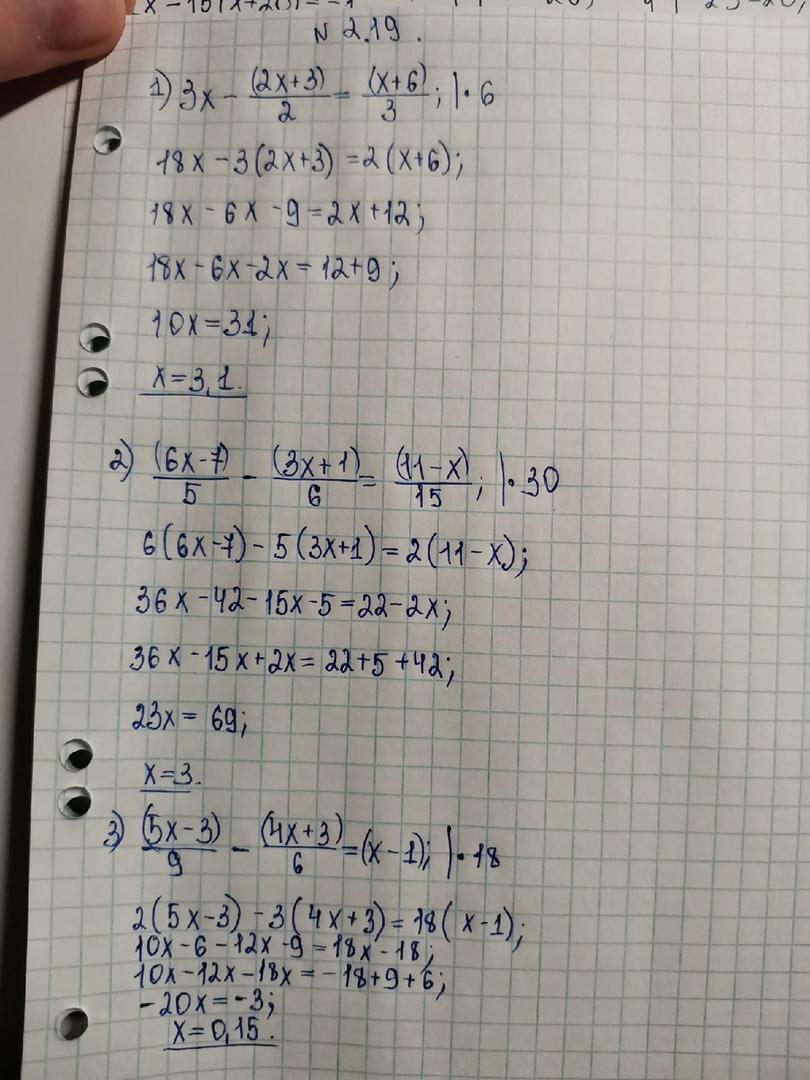 x-15(x+2)=-1
№ 2.19.
1) 3x - (2x+3)/2 = (x+6)/3; |·6
18x - 3(2x+3) = 2(x+6);
18x - 6x - 9 = 2x+12;
18x - 6x - 2x = 12+9;
10x = 31;
x = 3,1.
2) (6x-7)/5 - (3x+1)/6 = (11-x)/15; |·30
6(6x-7) - 5(3x+1) = 2(11-x);
36x - 42 - 15x - 5 = 22 - 2x;
36x - 15x + 2x = 22+5+42;
23x = 69;
x = 3.
3) (5x-3)/9 - (4x+3)/6 = (x-1); |·18
2(5x-3) - 3(4x+3) = 18(x-1);
10x - 6 - 12x - 9 = 18x - 18;
10x - 12x - 18x = -18+9+6;
-20x = -3;
x = 0,15.